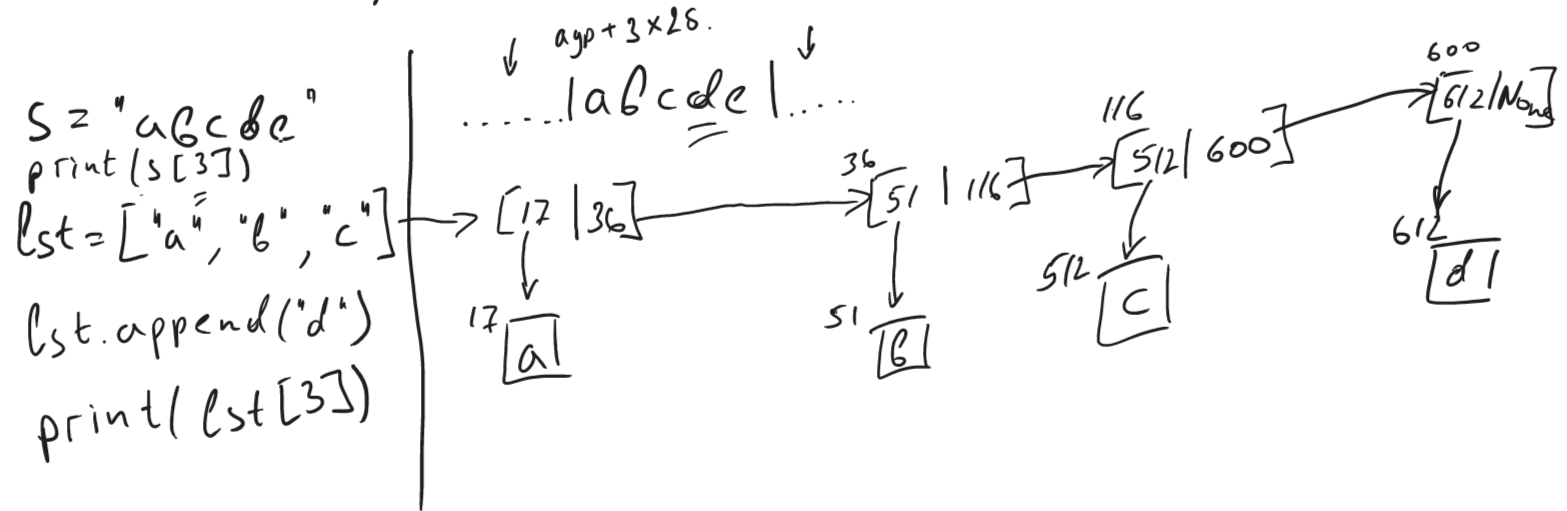 s = "abcde"
print(s[3])
lst = ["a", "b", "c"]
lst.append("d")
print(lst[3])
адр + 3 × 2б.
......|abcde|.....
[17 | 36]
17
a
36
[51 | 116]
51
b
116
[512 | 600]
512
c
600
[612 | None]
612
d